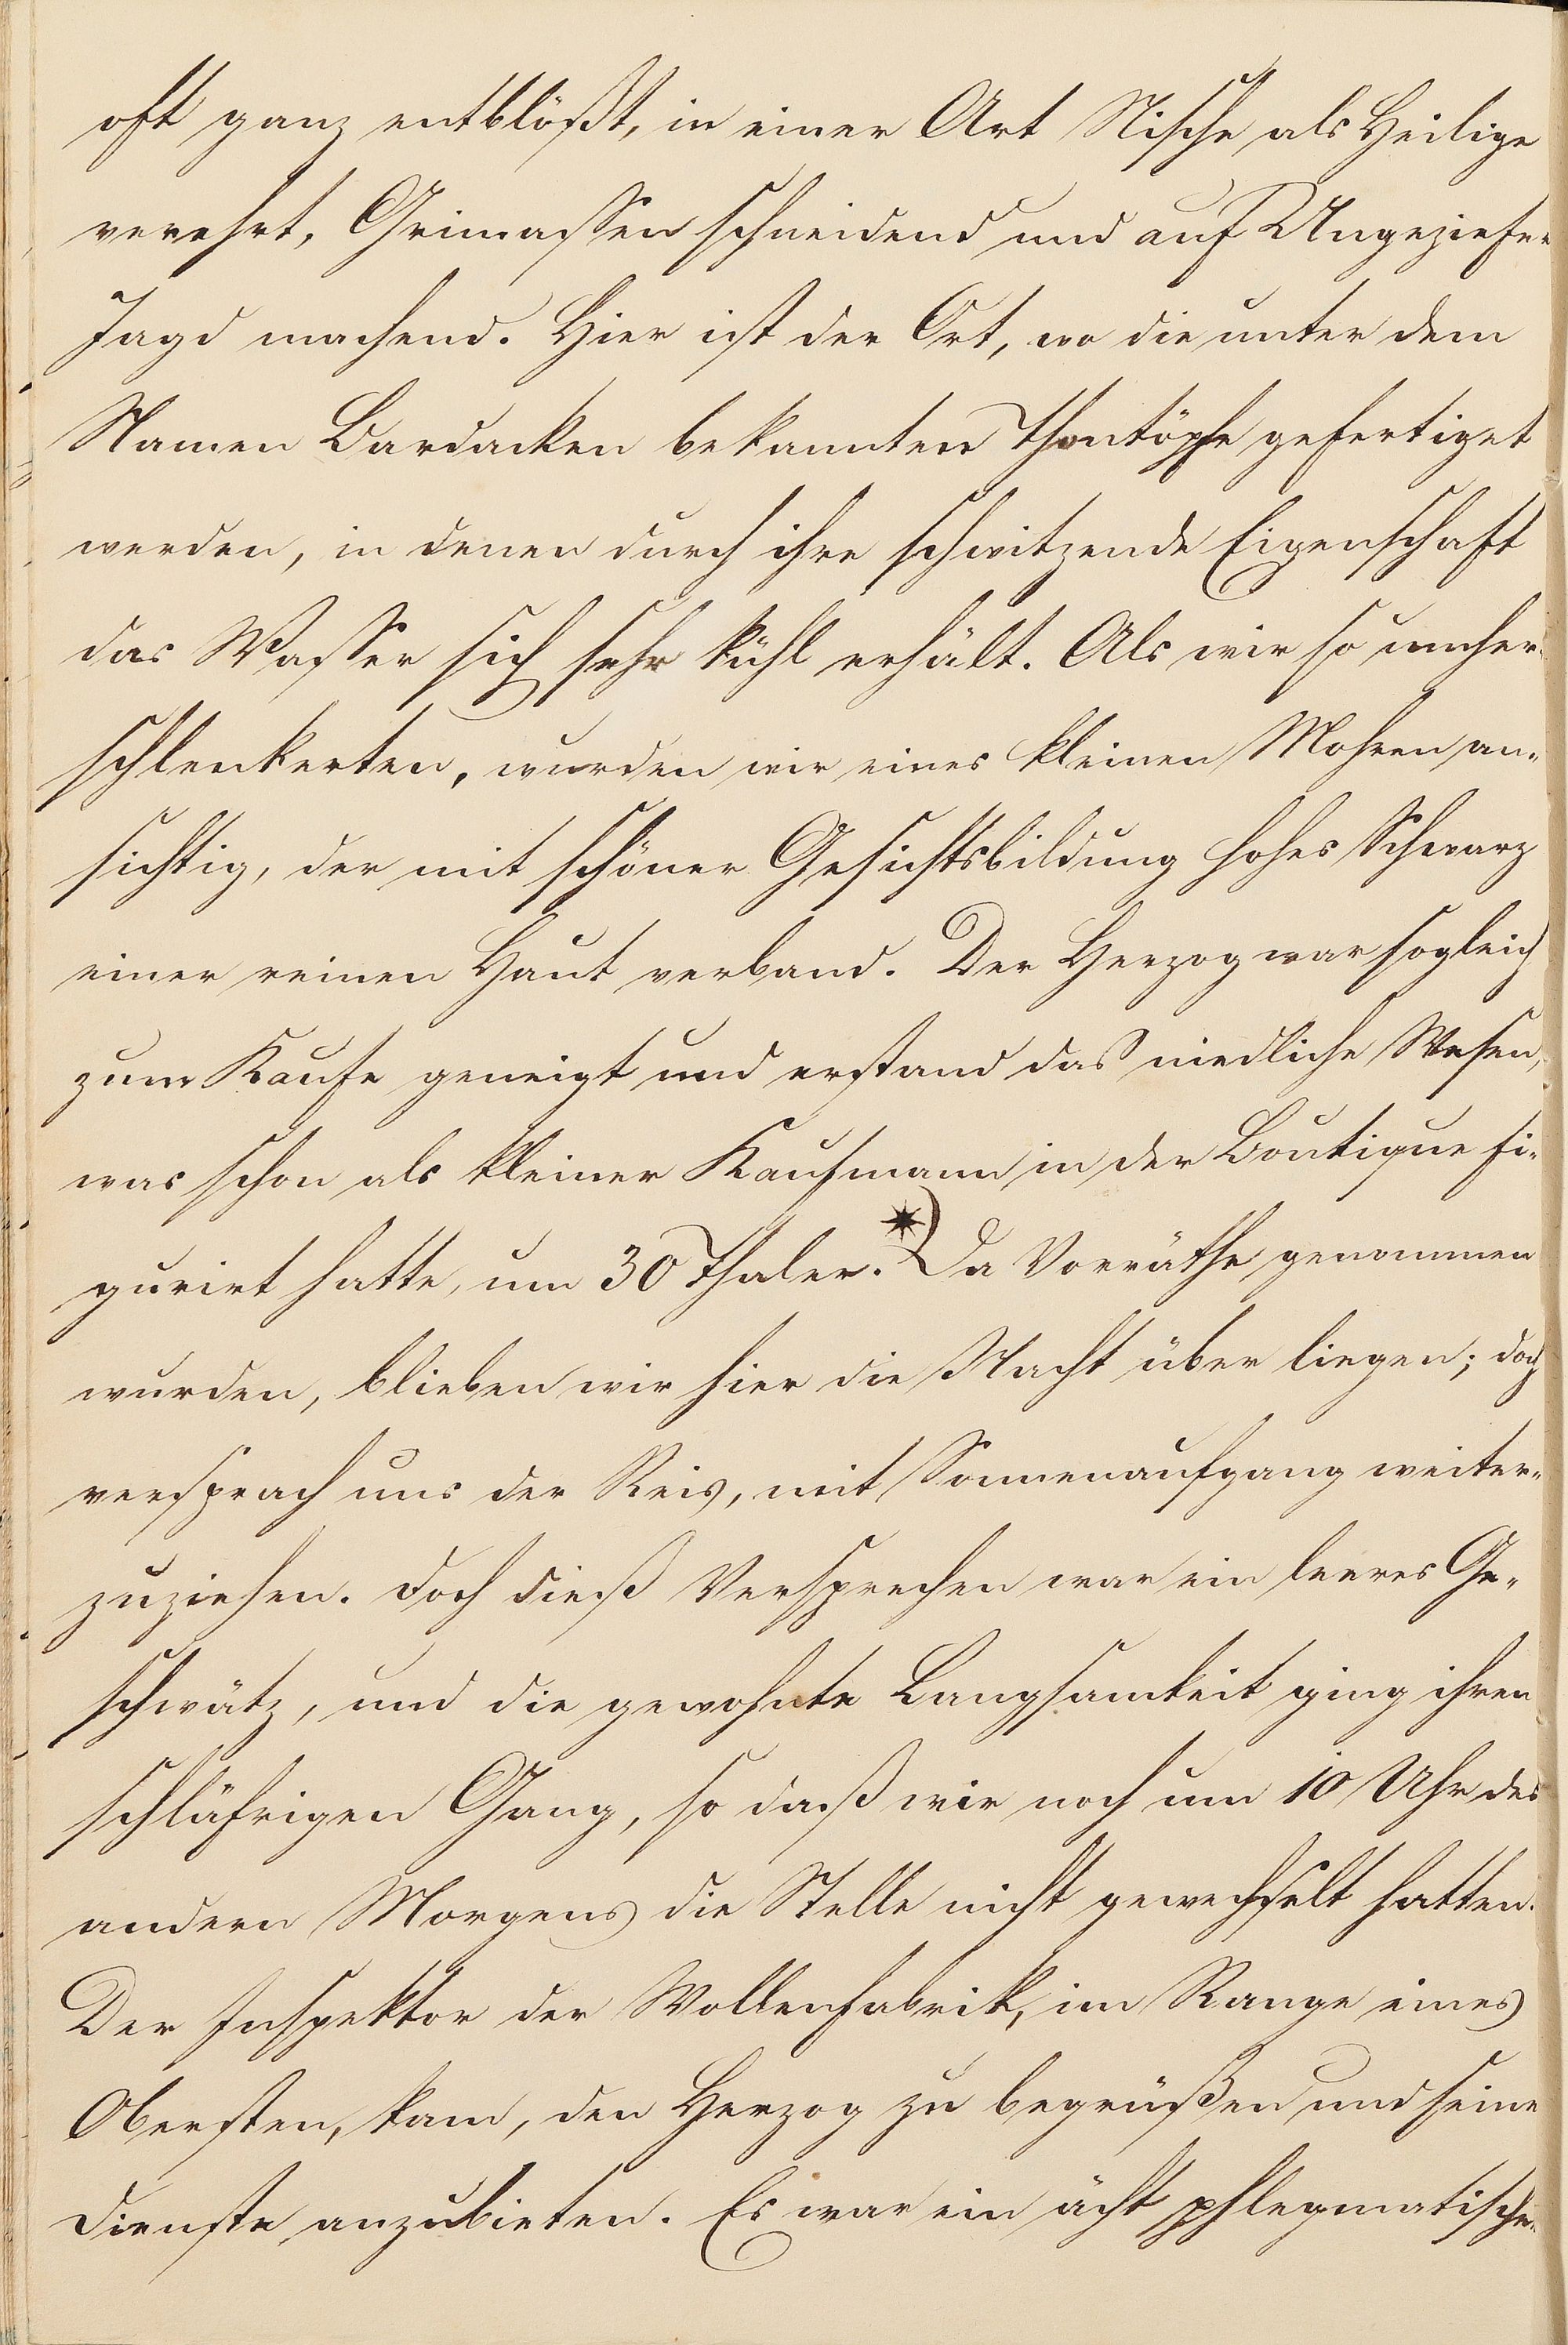 oft ganz entblößt, in einer Art Nische als Heilige
verehrt, Grimassen schneidend und auf Ungeziefer
Jagd machend. Hier ist der Ort, wo die unter dem
Namen Bardacken bekannten Thontöpfe gefertiget
werden, in denen durch ihre schwitzende Eigenschaft
das Wasser sich sehr kühl erhält. Als wir so umher-
schlenkerten, wurden wir eines kleinen Mohren an-
sichtig, der mit schöner Gesichtsbildung hohes Schwarz
einer reinen Haut verband. Der Herzog war sogleich
zum Kaufe geneigt und erstand das niedliche Wesen,
was schon als kleiner Kaufmann in der Boutique fi-
gurirt hatte, um 30 Thaler. *) Da Vorräthe genommen
wurden, blieben wir hier die Nacht über liegen; doch
versprach uns der Reis, mit Sonnenaufgang weiter-
zuziehen. Doch dieß Versprechen war ein leeres Ge-
schwätz, und die gewohnte Langsamkeit ging ihren
schläfrigen Gang, so daß wir noch um 10 Uhr des
andern Morgens die Stelle nicht gewechselt hatten.
Der Inspektor der Wollenfabrik, im Range eines
Obersten, kam, den Herzog zu begrüßen und seine
Dienste anzubieten. Es war ein ächt phlegmatischer